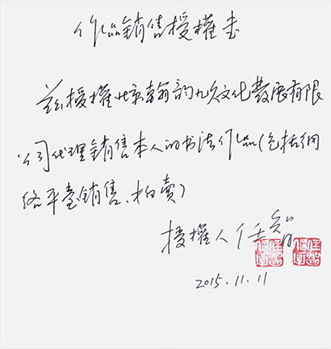 作品銷售授權书
兹授權北京翰韵九久文化發展有限
公司代理銷售本人的书法作品(包括網
络平臺銷售、拍賣)
授權人 任
2015.11.11